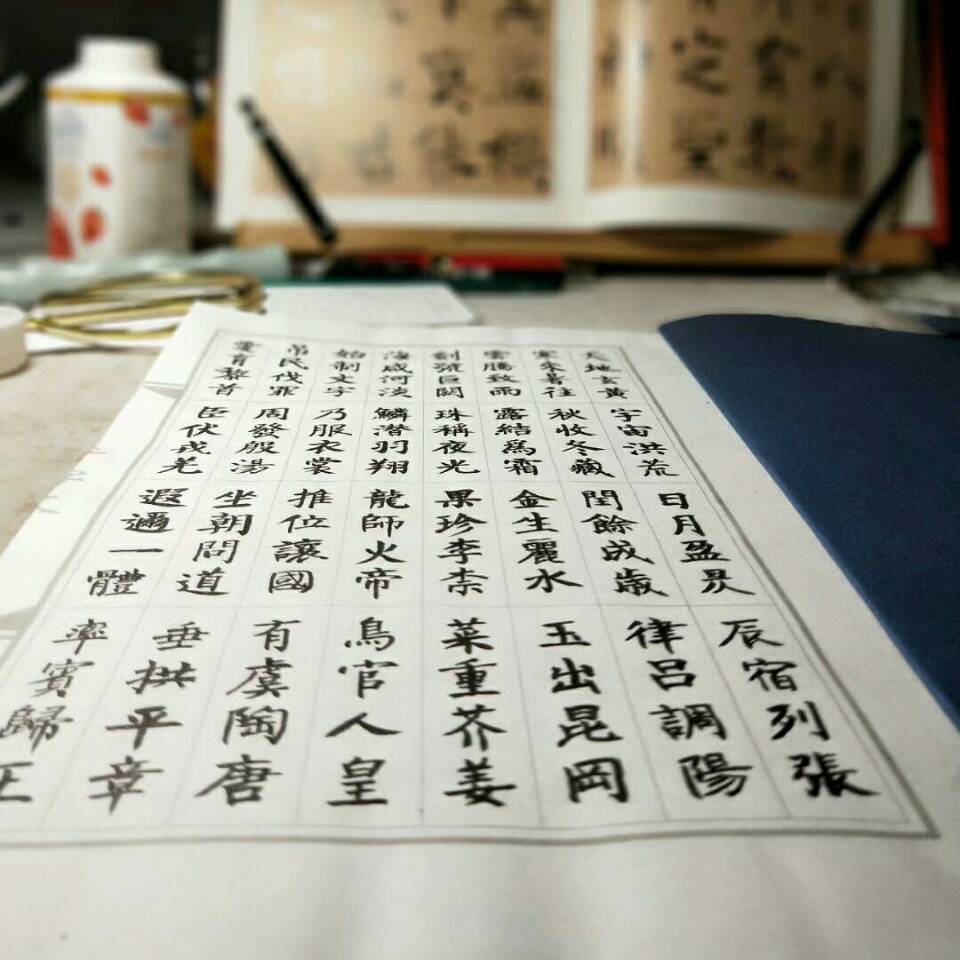 天地玄黃宇宙洪荒日月盈昃辰宿列張
寒来暑往秋收冬藏閏餘成歲律呂調陽
雲騰致雨露結爲霜金生麗水玉出昆岡
劍號巨闕珠稱夜光果珍李柰菜重芥姜
海咸河淡鱗潛羽翔龍師火帝鳥官人皇
始制文字乃服衣裳推位讓國有虞陶唐
吊民伐罪周發殷湯坐朝問道垂拱平章
愛育黎首臣伏戎羌遐邇一體率賓歸王